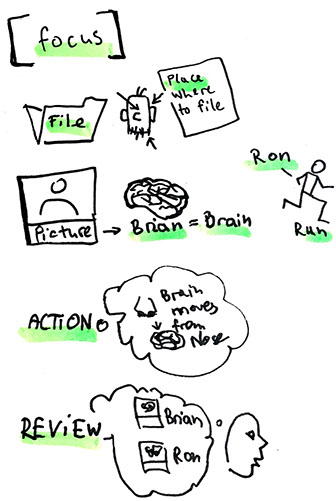 [focus]
File
Place
where
to file
Ron
Picture → Brian = Brain
Run
ACTION
Brain
moves
from
Nose
REVIEW
Brian
Ron